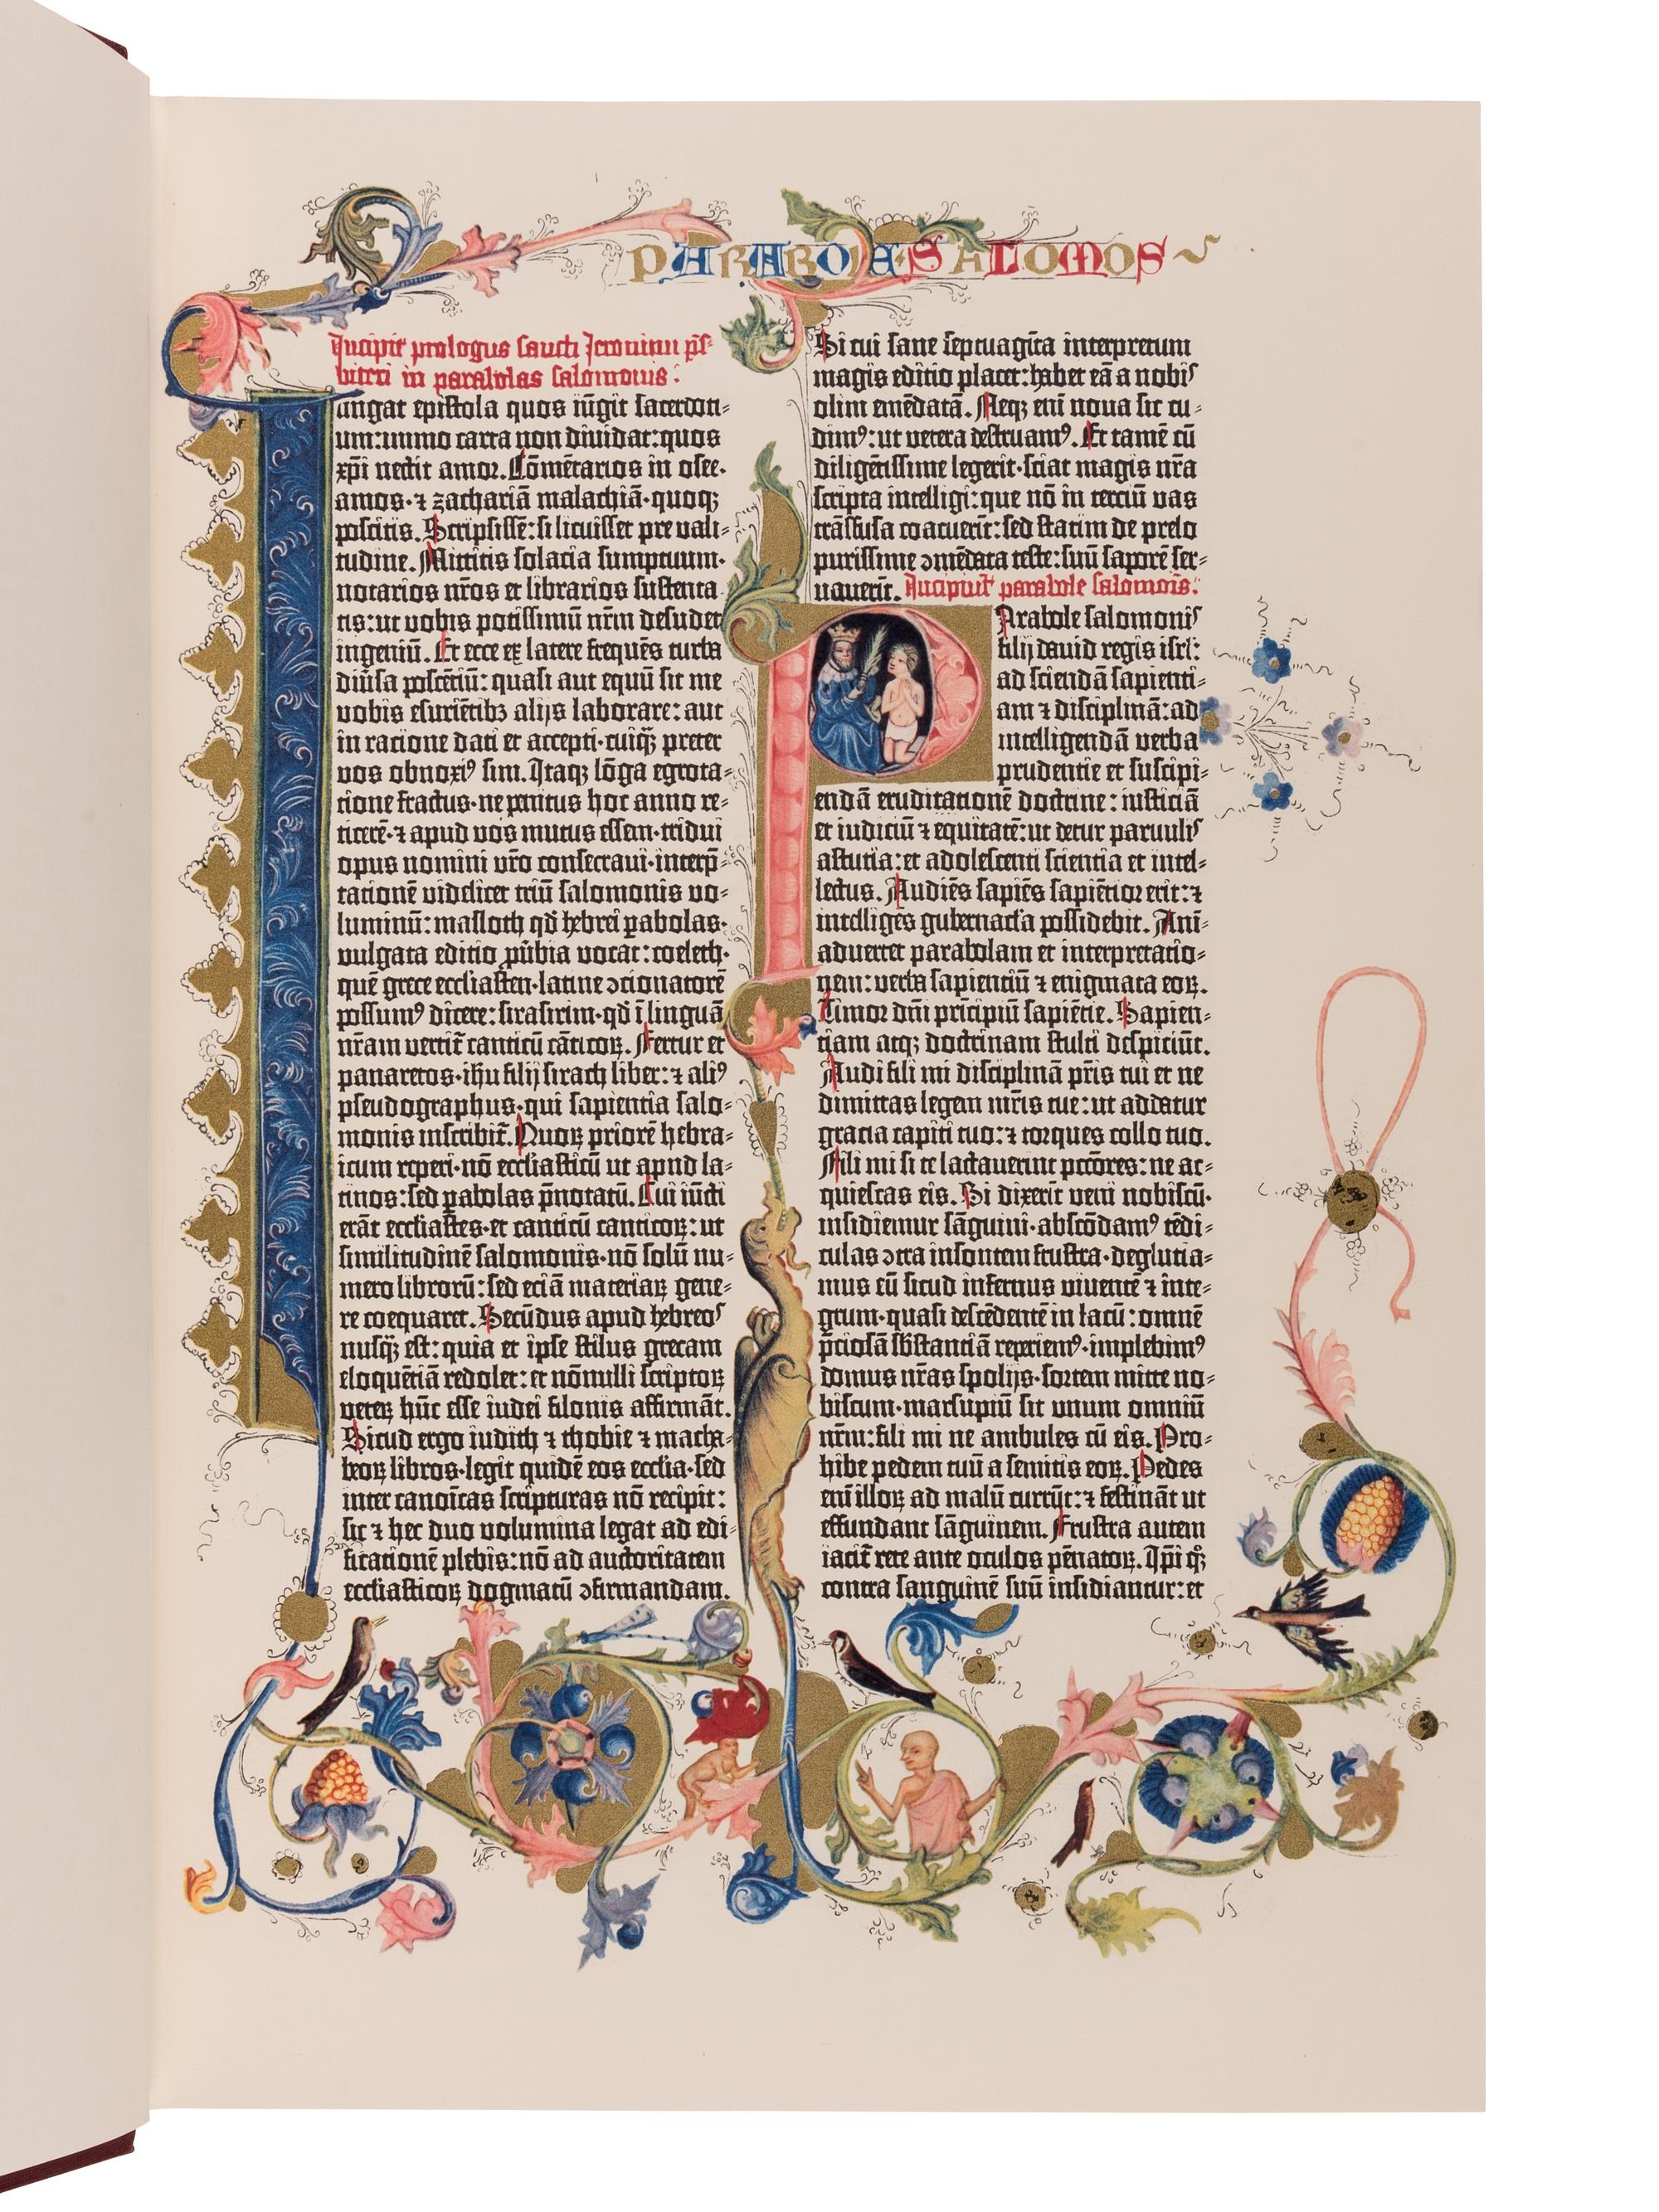 PARABOLE·SALOMOIS
Incipit prologus sancti Jeronimi p̄s-
biteri in parabolas salomonis:
Iungat epistola quos iūgit sacerdoti-
um: immo carta non diuidat: quos
xp̄i nectit amor. Cōmētarios in osee·
amos· ⁊ zachariā malachiā· quoqꝫ
poscitis. Scripsissē: si licuisset pre vali-
tudine. Mittitis solacia sumptuum·
notarios nr̄os et librarios sustenta-
tis: ut vobis potissimū nr̄m desudet
ingeniū. Et ecce ex latere frequēs turba
diūsa poscētiū: quasi aut equū sit me
vobis esuriētibꝫ alijs laborare: aut
in racione dati et accepti· cuiq̄ꝫ preter
vos obnoxiꝰ sim. Itaqꝫ lōga egrota-
tione fractus· ne penitus hoc anno re-
ticerē· ⁊ apud vos mutus essem· tridui
opus nomini vr̄o consecraui· interp̄-
tationē videlicet triū salomonis vo-
luminū: masloth qd̄ hebrei ꝑabolas·
vulgata editio ꝓūbia vocat: coeleth·
quē grece ecclīasten· latine ↄcionatorē
possumꝰ dicere: sirasirim· qd̄ ī linguā
nr̄am vertit̄ canticū cāticoꝝ. Fertur et
panaretos· ih̄u filij sirach liber: ⁊ aliꝰ
pseudographus· qui sapientia salo-
monis inscribit̄. Quoꝝ priorē hebra-
icum reperi· nō ecclīasticū ut apud la-
tinos: sed ꝑabolas p̄notatū. Cui iūcti
erāt ecclīastes· et canticū canticoꝝ: ut
similitudinē salomonis· nō solū nu-
mero librorū: sed eciā materiaꝝ gene-
re coequaret. Secūdus apud hebreos
nusq̄ꝫ est: quia et ipse stilus grecam
eloquētiā redolet: et nōnulli scriptoꝝ
veteꝝ hūc esse iudei filonis affirmāt.
Sicud ergo iudith ⁊ thobie ⁊ macha-
beoꝝ libros· legit quidē eos ecclīa· sed
inter canoīcas scripturas nō recipit:
sic ⁊ hec duo volumina legat ad edi-
ficationē plebis: nō ad auctoritatem
ecclīasticoꝝ dogmatū ↄfirmandam.
Si cui sane septuagīta interpretum
magis editio placet: habet eā a nobis
olim emēdatā. Neqꝫ enī noua sic cu-
dimꝰ: ut vetera destruamꝰ. Et tamē cū
diligētissime legerit· sciat magis nr̄a
scripta intelligi: que nō in terciū vas
trāsfusa coacuerīt: sed statim de prelo
purissime ↄmēdata teste: suū saporē ser-
uauerīt. Incipiūt parabole salomōis.
Parabole salomonis
filij dauid regis isrl̄:
ad sciendā sapienti-
am ⁊ disciplinā: ad
intelligendā verba
prudentie et suscipi-
endā eruditationē doctrine: iusticiā
et iudiciū ⁊ equitatē: ut detur paruulis
astutia: et adolescenti scientia et intel-
lectus. Audiēs sapiēs sapiētior erit: ⁊
intelligēs gubernacl̄a possidebit. Ani-
aduertet parabolam et interpretatio-
nem: verba sapientiū ⁊ enigmata eoꝝ.
Timor dn̄i prīcipiū sapiētie. Sapien-
tiam atqꝫ doctrinam stulti despiciūt.
Audi fili mi disciplinā pr̄is tui et ne
dimittas legem mr̄is tue: ut addatur
gracia capiti tuo: ⁊ torques collo tuo.
Fili mi si te lactauerint pctōres: ne ac-
quiescas eis. Si dixerīt veni nobiscū·
insidiemur sāguini· abscōdamꝰ tēdi-
culas ↄtra insontem frustra· deglutia-
mus eū sicud infernus viuentē ⁊ inte-
grum· quasi descēdentē in lacū: omnē
p̄ciosā sb̄stantiā reperiemꝰ· implebimꝰ
domus nr̄as spolijs· sortem mitte no-
biscum· marsupiū sit vnum omniū
nr̄m: fili mi ne ambules cū eis. Pro-
hibe pedem tuū a semitis eoꝝ. Pedes
enī illoꝝ ad malū currūt: ⁊ festināt ut
effundant sāguinem. Frustra autem
iacit̄ rete ante oculos pēnatoꝝ. Ip̄i qꝫ
contra sanguinē suū insidiantur: et